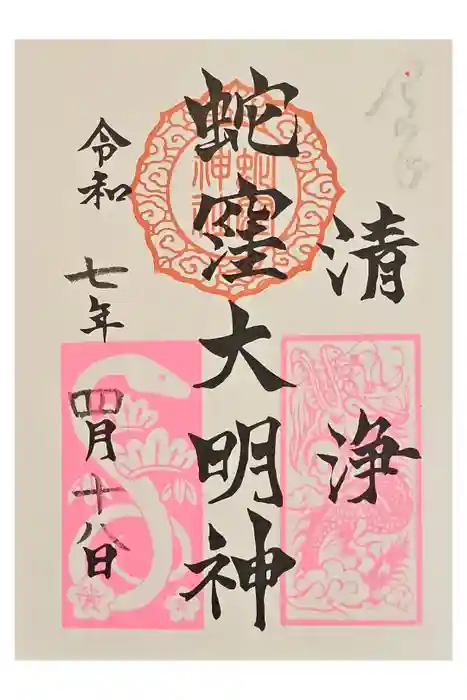 清浄
蛇窪大明神
令和七年四月十八日
蛇窪神社